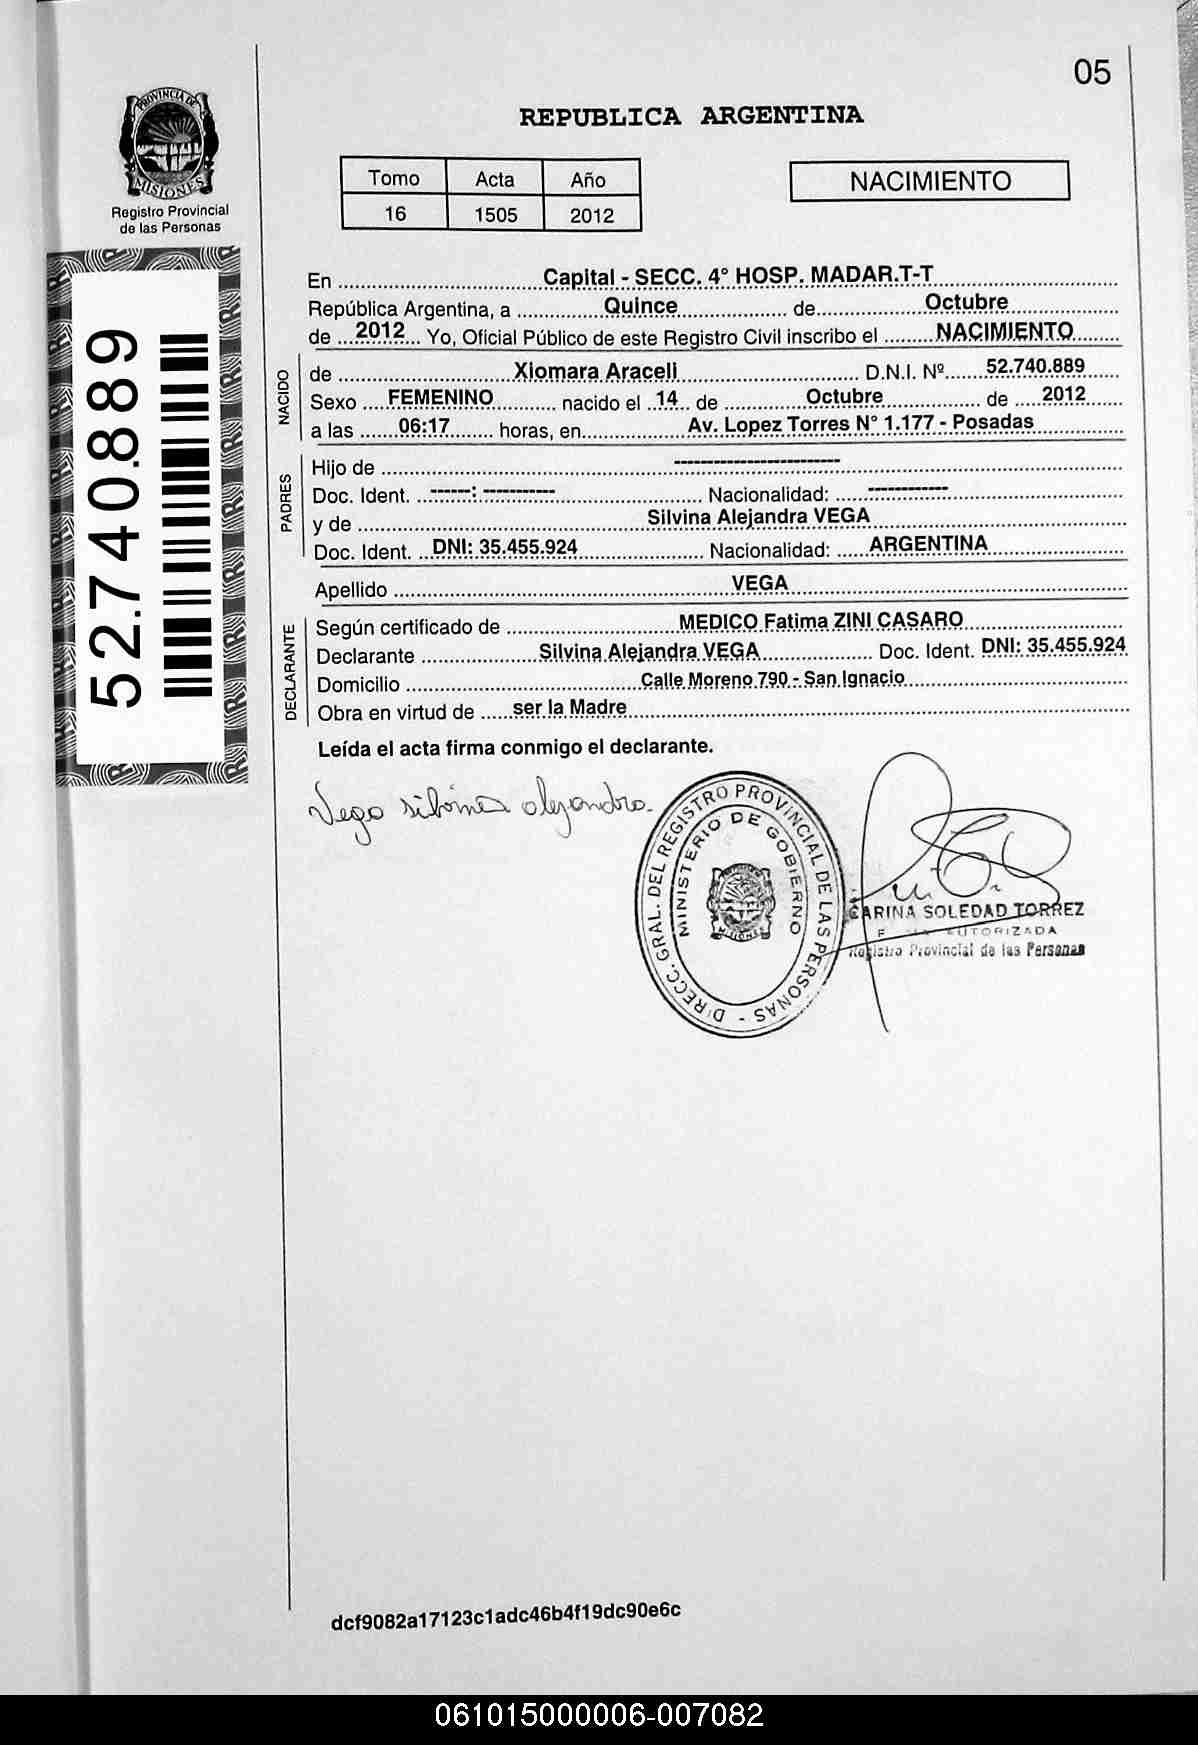 05
PROVINCIA DE
MISIONES
Registro Provincial
de las Personas
REPUBLICA ARGENTINA
Tomo Acta Año
16 1505 2012
NACIMIENTO
52.740.889
En ... Capital - SECC. 4° HOSP. MADAR.T-T
República Argentina, a ... Quince ... de ... Octubre
de ... 2012 ... Yo, Oficial Público de este Registro Civil inscribo el ... NACIMIENTO
NACIDO
de ... Xiomara Araceli ... D.N.I. Nº ... 52.740.889
Sexo ... FEMENINO ... nacido el ... 14 ... de ... Octubre ... de ... 2012
a las ... 06:17 ... horas, en ... Av. Lopez Torres N° 1.177 - Posadas
PADRES
Hijo de ... ------------------------
Doc. Ident. ... ------: ---------- ... Nacionalidad: ... -----------
y de ... Silvina Alejandra VEGA
Doc. Ident. ... DNI: 35.455.924 ... Nacionalidad: ... ARGENTINA
Apellido ... VEGA
DECLARANTE
Según certificado de ... MEDICO Fatima ZINI CASARO
Declarante ... Silvina Alejandra VEGA ... Doc. Ident. DNI: 35.455.924
Domicilio ... Calle Moreno 790 - San Ignacio
Obra en virtud de ... ser la Madre
Leída el acta firma conmigo el declarante.
Vega silvina alejandra.
DIRECC. GRAL. DEL REGISTRO PROVINCIAL DE LAS PERSONAS -
MINISTERIO DE GOBIERNO
MISIONES
CARINA SOLEDAD TORREZ
AUTORIZADA
Registro Provincial de las Personas
dcf9082a17123c1adc46b4f19dc90e6c
061015000006-007082